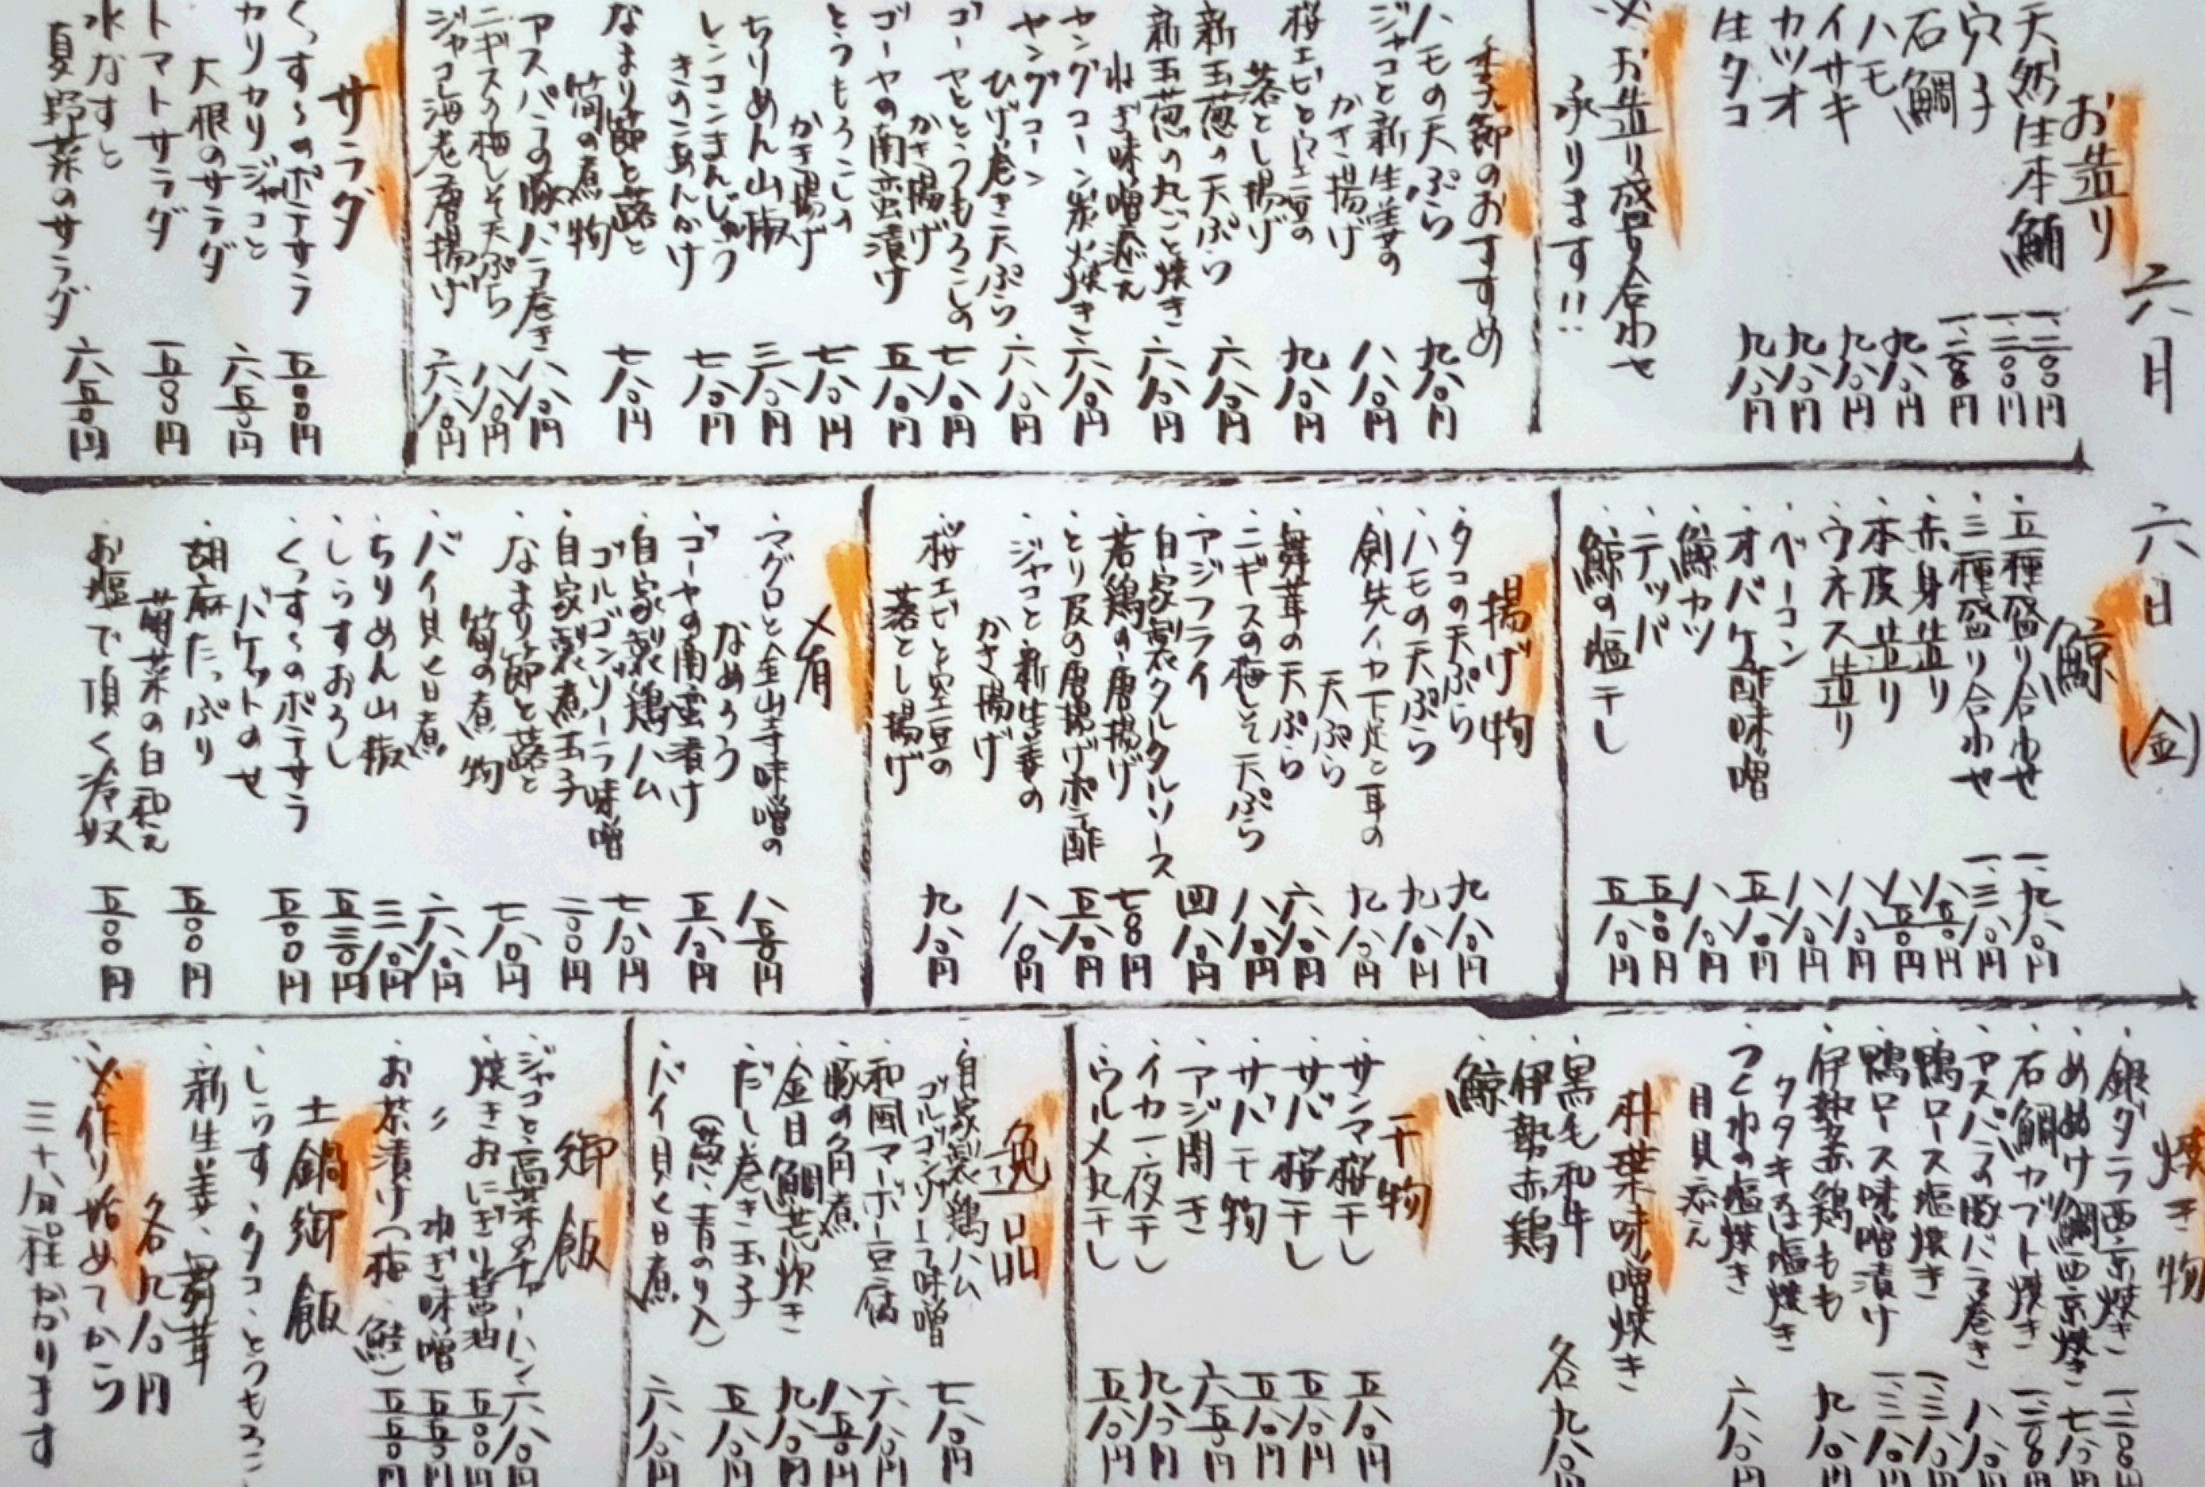 六月 六日(金)
お造り
天然生本鮪 一、二〇〇円
穴子 一、二〇〇円
石鯛 一、二〇〇円
ハモ 九八〇円
イサキ 九八〇円
カツオ 九八〇円
生タコ 九八〇円
※お造り盛り合わせ
承ります!!
季節のおすすめ
ハモの天ぷら 九八〇円
ジャコと新生姜の
かき揚げ 八八〇円
桜エビと空豆の
落とし揚げ 九八〇円
新玉葱の天ぷら 六八〇円
新玉葱の丸ごと焼き
ねぎ味噌添え 六八〇円
ヤングコーン炭火焼き 六八〇円
ヤングコーン
ひげ巻き天ぷら 六八〇円
ゴーヤととうもろこしの
かき揚げ 七八〇円
ゴーヤの南蛮漬け 五八〇円
とうもろこしの
かき揚げ 七八〇円
ちりめん山椒 三八〇円
レンコンまんじゅう
きのこあんかけ 七八〇円
なまり節と蕗と
筍の煮物 七八〇円
アスパラの豚バラ巻き 八八〇円
ニギスの梅しそ天ぷら 八八〇円
ジャコ海老唐揚げ 六八〇円
サラダ
くっす〜のポテサラ 五〇〇円
カリカリジャコと
大根のサラダ 六五〇円
トマトサラダ 五〇円
水なすと
夏野菜のサラダ 六五〇円
鯨
五種盛り合わせ 一、九八〇円
三種盛り合わせ 一、三八〇円
赤身造り 八五〇円
本皮造り 八五〇円
ウネス造り 八八〇円
ベーコン 八八〇円
オバケ酢味噌 五八〇円
鯨カツ 八八〇円
テッパ 五〇〇円
鯨の塩干し 五八〇円
揚げ物
タコの天ぷら 九八〇円
ハモの天ぷら 九八〇円
剣先イカ下足と耳の
天ぷら 九八〇円
舞茸の天ぷら 六八〇円
ニギスの梅しそ天ぷら 八八〇円
アジフライ
自家製タルタルソース 四八〇円
若鶏の唐揚げ 七〇〇円
とり皮の唐揚げポン酢 五八〇円
ジャコと新生姜の
かき揚げ 八八〇円
桜エビと空豆の
落とし揚げ 九八〇円
肴
マグロと金山寺味噌の
なめろう 八五〇円
ゴーヤの南蛮漬け 五八〇円
自家製鶏ハム
ゴルゴンゾーラ味噌 七八〇円
自家製煮玉子 二〇〇円
なまり節と蕗と
筍の煮物 七八〇円
バイ貝と旨煮 六八〇円
ちりめん山椒 三八〇円
しらすおろし 五三〇円
くっす〜のポテサラ
バケットのせ 五〇〇円
胡麻たっぷり
菊菜の白和え 五〇〇円
お塩で頂く冷奴 五〇〇円
焼き物
銀ダラ西京焼き 一、二〇〇円
めぬけ鯛西京焼き 七八〇円
石鯛カブト焼き 一、二〇〇円
アスパラの豚バラ巻き 八八〇円
鴨ロース塩焼き 一、三八〇円
鴨ロース味噌漬け 一、三八〇円
伊勢赤鶏もも
タタキ又は塩焼き 九八〇円
つくねの塩焼き
月見添え 六八〇円
朴葉味噌焼き
黒毛和牛
伊勢赤鶏
鯨
各九八〇円
干物
サンマ桜干し 五八〇円
サバ桜干し 五八〇円
サバ干物 五八〇円
アジ開き 六五〇円
イカ一夜干し 九八〇円
ウルメ丸干し 五八〇円
逸品
自家製鶏ハム
ゴルゴンゾーラ味噌 七八〇円
和風マーボー豆腐 六八〇円
豚の角煮 八五〇円
金目鯛荒炊き 九八〇円
だし巻き玉子
(葱、青のり入) 五八〇円
バイ貝と旨煮 六八〇円
御飯
ジャコと高菜のチャーハン 六八〇円
焼きおにぎり醤油 五〇〇円
〃 ねぎ味噌 五五〇円
お茶漬け(梅・鮭) 五五〇円
土鍋御飯
しらす、タコ、とうもろこし
新生姜、舞茸
各九八〇円
※作り始めてから
三十分程かかります